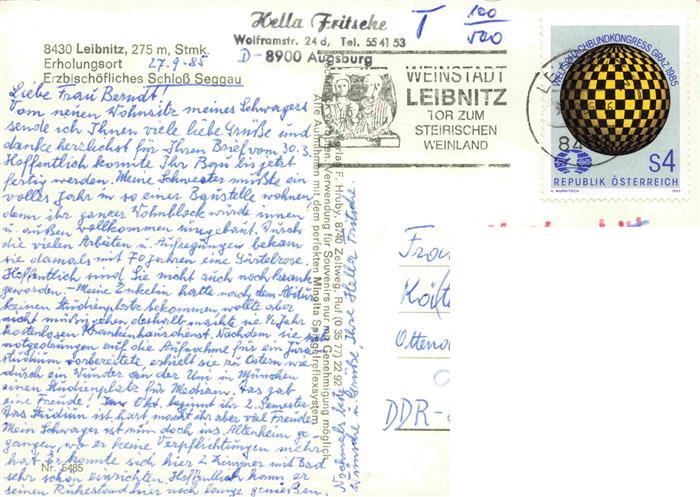 Hella Fritsche
Wolframstr. 24 d, Tel. 55 41 53
D - 8900 Augsburg
T 100
500
8430 Leibnitz, 275 m, Stmk.
Erholungsort 27.9.85
Erzbischöfliches Schloß Seggau
WEINSTADT
LEIBNITZ
TOR ZUM
STEIRISCHEN
WEINLAND
WELTSCHACHBUNDKONGRESS GRAZ 1985
S4
REPUBLIK ÖSTERREICH
1985
84
Liebe Frau Berndt!
Vom neuen Wohnsitz meines Schwagers
sende ich Ihnen viele liebe Grüße und
danke herzlichst für Ihren Brief vom 30.3.
Hoffentlich konnte Ihr Bau bis jetzt
fertig werden. Meine Schwester mußte ein
volles Jahr in so einer Baustelle wohnen,
denn ihr ganzer Wohnblock wurde innen
u. außen vollkommen umgebaut. Durch
die vielen Arbeiten u. Aufregungen bekam
sie damals mit 70 Jahren eine Gürtelrose.
Hoffentlich sind Sie nicht auch noch krank
geworden. - Meine Enkelin hatte nach dem Abitur
keinen Studienplatz bekommen, wollte aber
nicht müßig gehen deshalb machte sie ½ Jahr
kostenlosen Krankenhausdienst. Nachdem sie sich
notgedrungen auf die Aufnahme für ein Jura
studium vorbereitete, erhielt sie zu Ostern wie
durch ein Wunder an der Uni in München
einen Studienplatz für Medizin. Das gab
eine Freude! Im Okt. beginnt ihr 2. Semester
Das Studium ist hart macht ihr aber viel Freude.
Mein Schwager ist nun doch ins Altenheim ge-
gangen, wo er keine Verpflichtungen mehr
hat. Er konnte sich hier 2 Zimmer mit Bad
sehr schön einrichten. Hoffentlich kann er
seinen Ruhestand hier noch lange genießen.
Nr. 5485
Nochmals beste
Wünsche u. Grüße Ihre Hella Fritsche
F. Hruby, 8740 Zeltweg, Ruf (0 35 77) 22 92
Verwendung für Souvenirs nur mit Genehmigung möglich.
Alle Aufnahmen mit dem perfekten Minolta Spiegelreflexsystem
Frau
Ottend
DDR-